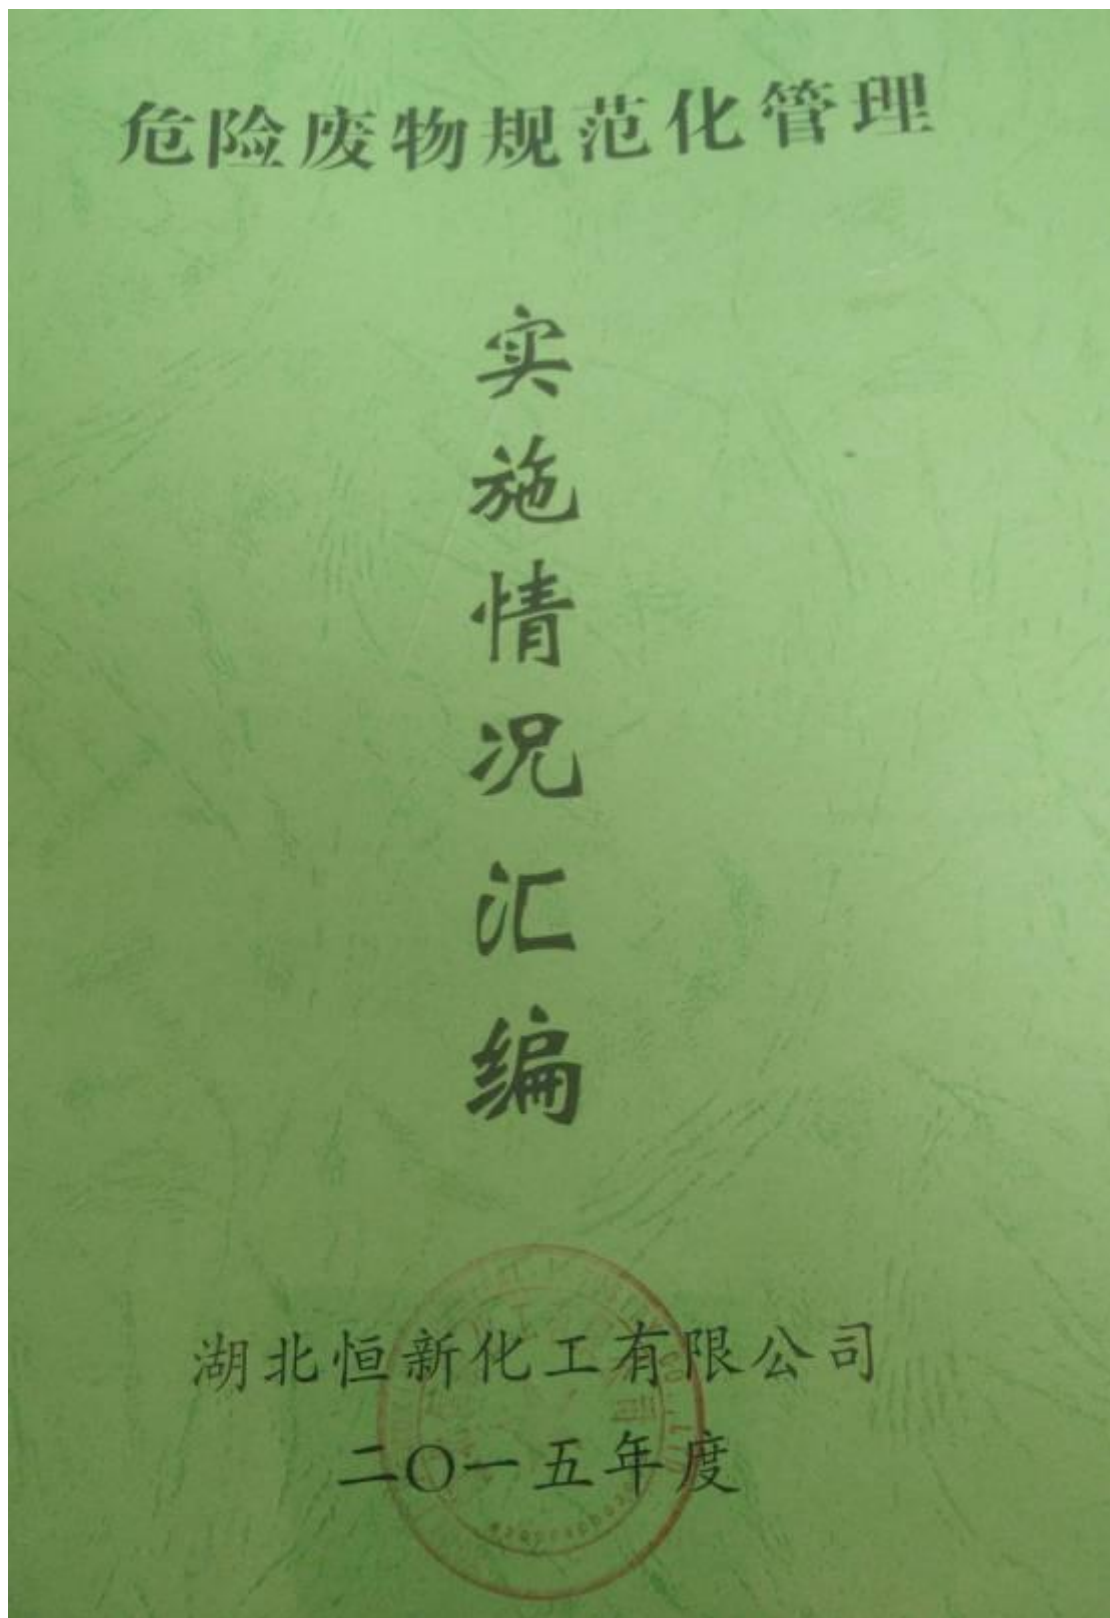 危险废物规范化管理
实施情况汇编
湖北恒新化工有限公司
二〇一五年度